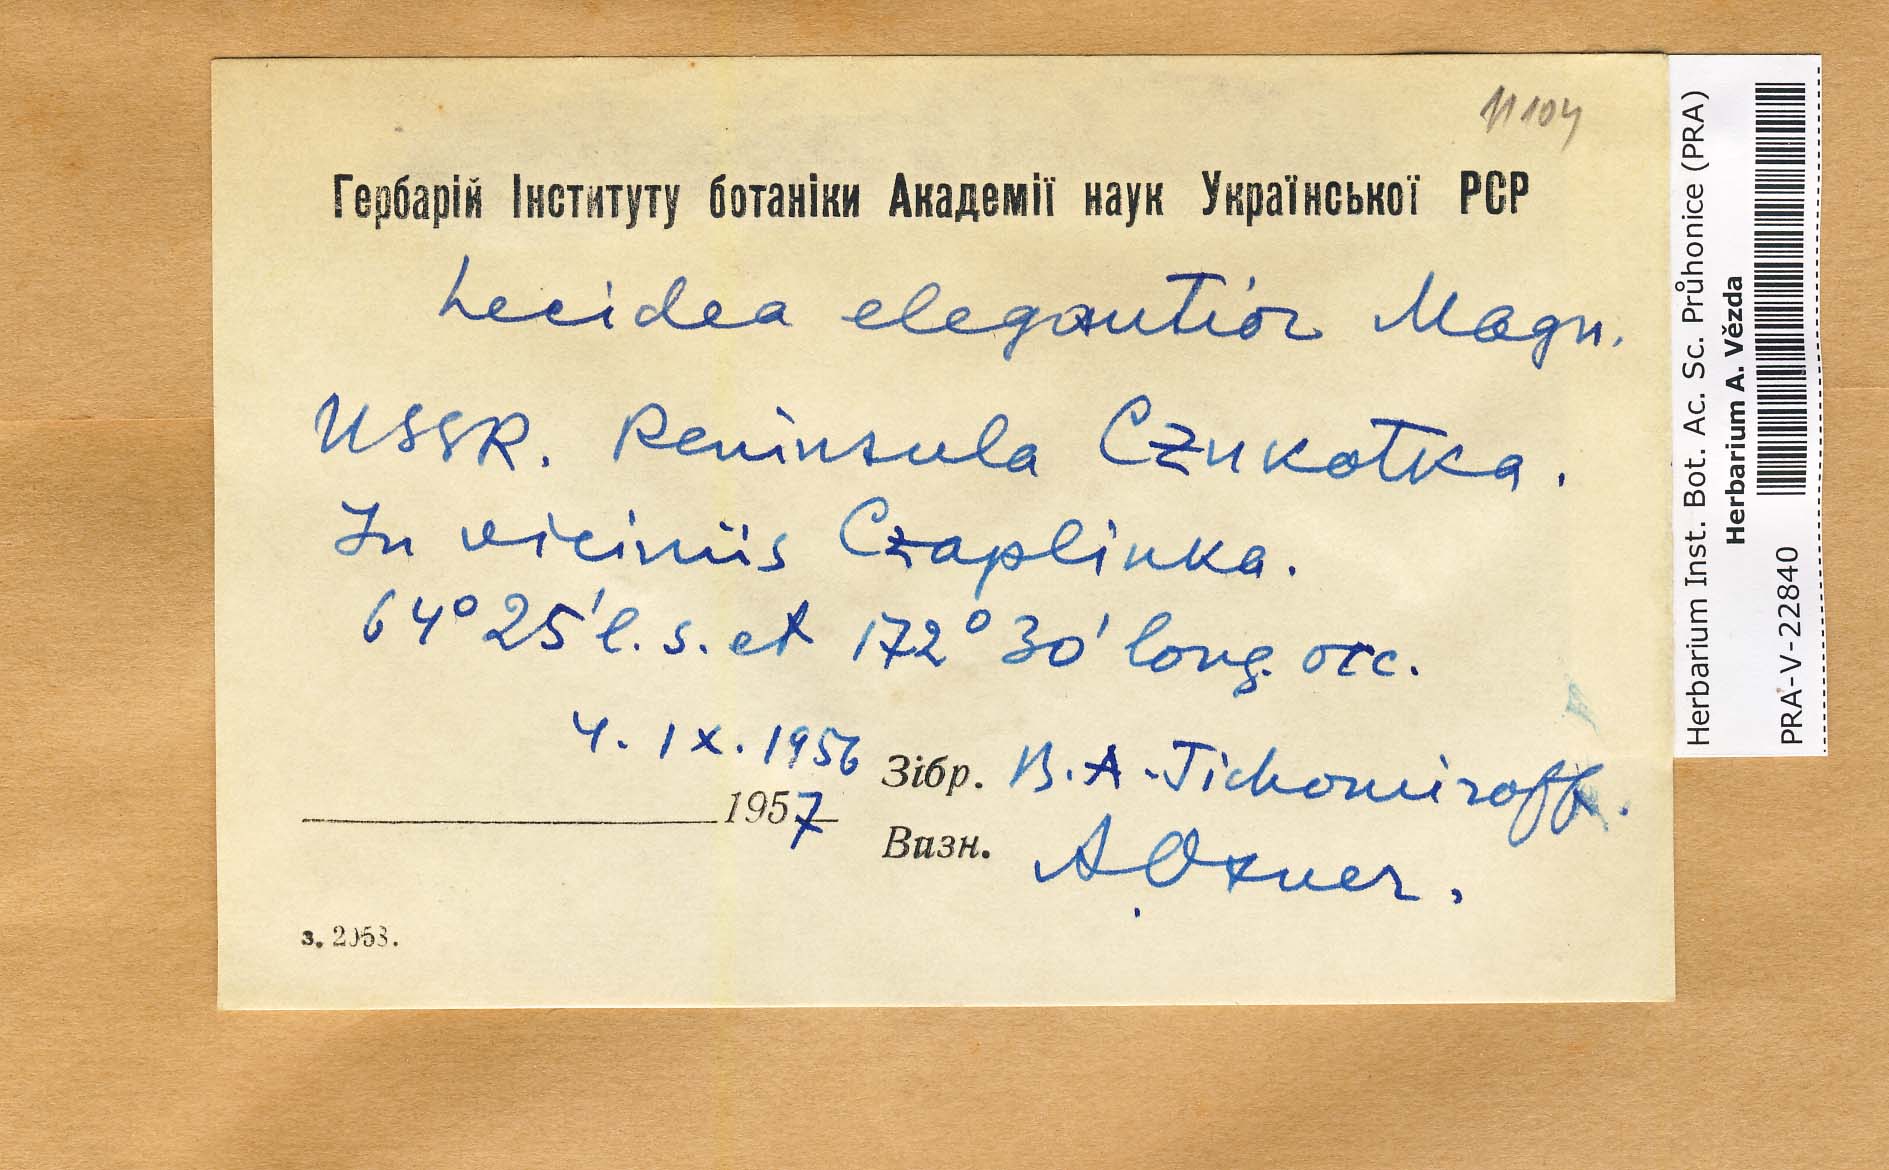 11104
Гербарій Інституту ботаніки Академії наук Української РСР
Lecidea elegantior Magn.
USSR. Peninsula Czukotka.
In viciniis Czaplinka.
64° 25' l. s. et 172° 30' long. occ.
4. IX. 1956
Зібр. B. A. Tichomiroff.
1957
Визн. A. Oxner.
з. 2058.
Herbarium Inst. Bot. Ac. Sc. Průhonice (PRA)
Herbarium A. Vězda
PRA-V-22840